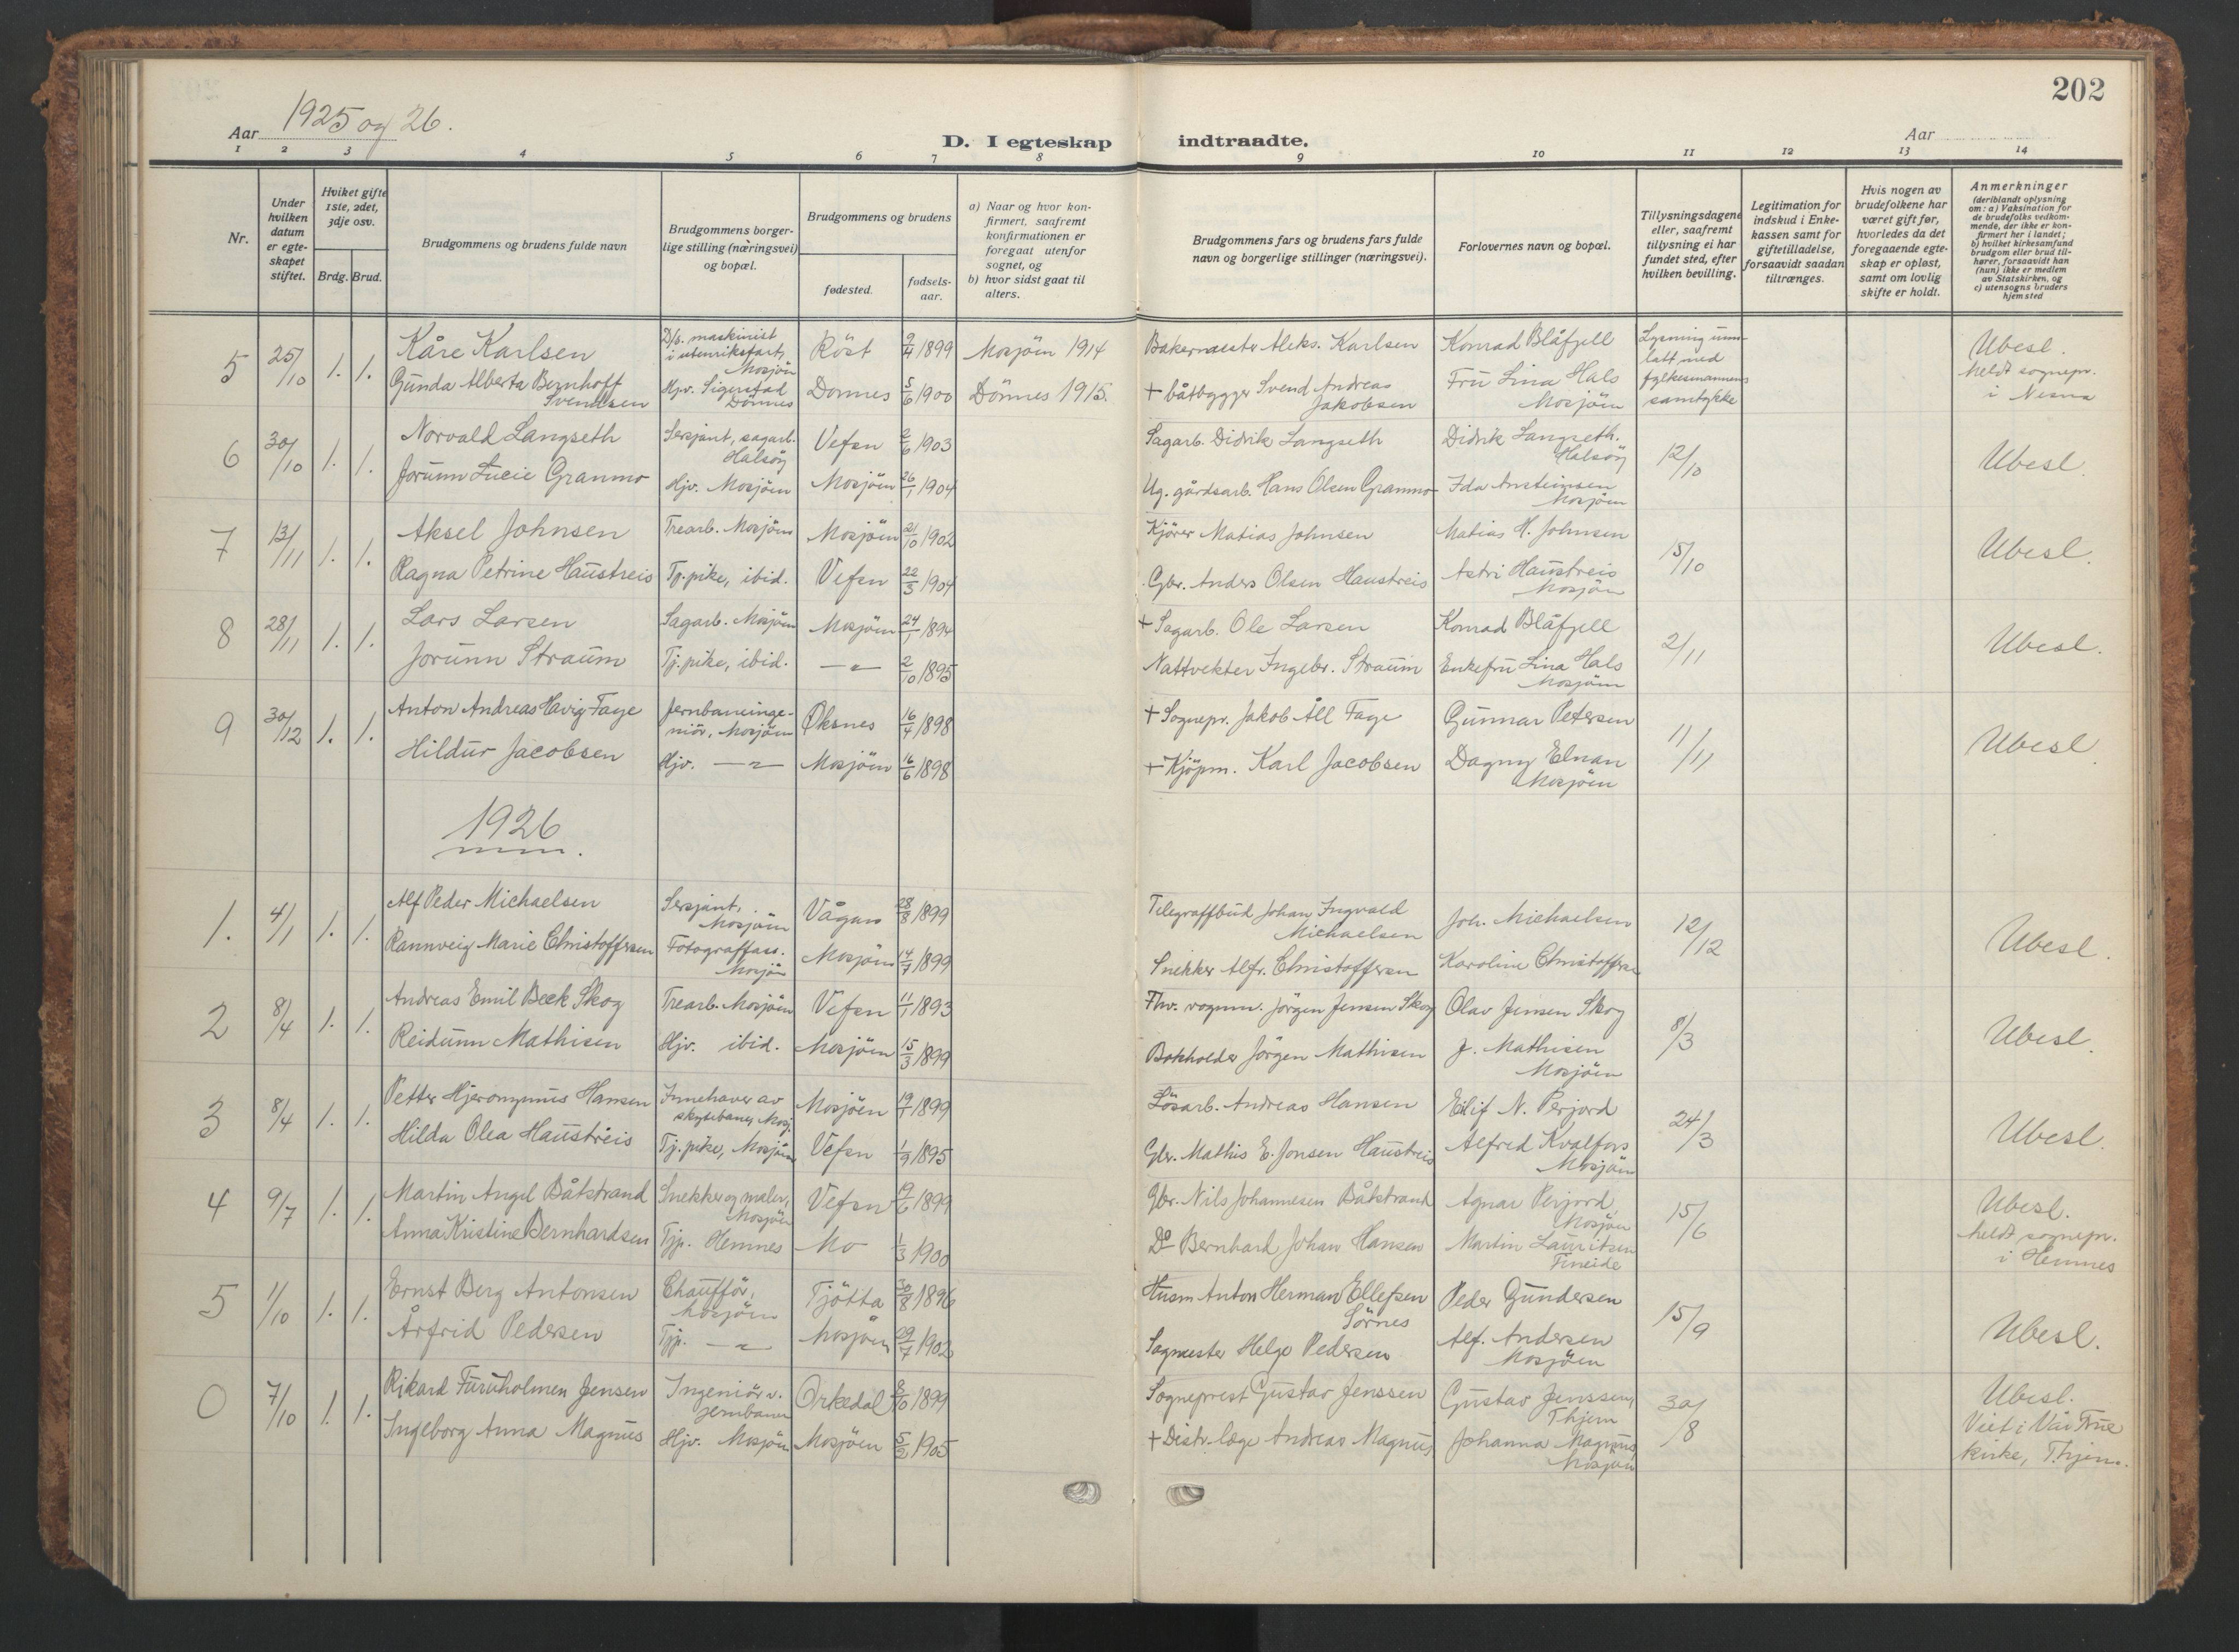 202
Aar 1925 og 26.
D. I egteskap indtraadte.
Aar
1 2 3 4 5 6 7 8 9 10 11 12 13 14
Nr.
Under hvilken datum er egteskapet stiftet.
Hviket gifte 1ste, 2det, 3dje osv.
Brdg. Brud.
Brudgommens og brudens fulde navn
Brudgommens borgerlige stilling (næringsvei) og bopæl.
Brudgommens og brudens
fødested.
fødselsaar.
a) Naar og hvor konfirmert, saafremt konfirmationen er foregaat utenfor sognet, og
b) hvor sidst gaat til alters.
Brudgommens fars og brudens fars fulde navn og borgerlige stillinger (næringsvei).
Forlovernes navn og bopæl.
Tillysningsdagene eller, saafremt tillysning ei har fundet sted, efter hvilken bevilling.
Legitimation for indskud i Enkekassen samt for giftetilladelse, forsaavidt saadan tiltrænges.
Hvis nogen av brudefolkene har været gift før, hvorledes da det foregaaende egteskap er opløst, samt om lovlig skifte er holdt.
Anmerkninger (deriblandt oplysning om: a) Vaksination for de brudefolks vedkommende, der ikke er konfirmert her i landet; b) hvilket kirkesamfund brudgom eller brud tilhører, forsaavidt han (hun) ikke er medlem av Statskirken, og c) utensogns bruders hjemsted
5 25/10 1. 1. Kåre Karlsen D/s. maskinist i utenriksfart, Mosjöen Röst 9/4 1899 Mosjöen 1914 Bakermester Aleks. Karlsen Konrad Blåfjell Lysning unnlatt med fylkesmannens samtykke Ubesl. heldt sognepr. i Nesna
Gunda Alberta Bernhoff Svendsen Hjv. Sigerstad Dönnes Dönnes 5/6 1900 Dönnes 1915. + båtbygger Svend Andreas Jakobsen Fru Lina Hals Mosjöen
6 30/10 1. 1. Norvald Langseth Sersjant, sagarb. Halsöy Vefsn 2/6 1903 Sagarb. Didrik Langseth Didrik Langseth. Halsöy 12/10 Ubesl.
Jorunn Lucie Granmo Hjv. Mosjöen Mosjöen 26/1 1904 Ug. gårdsarb. Hans Olsen Granmo Ida Ansteinsen Mosjöen
7 13/11 1. 1. Aksel Johnsen Trearb. Mosjöen Mosjöen 21/10 1902 Kjörer Matias Johnsen Matias H. Johnsen 15/10 Ubesl.
Ragna Petrine Haustreis Tj. pike, ibid. Vefsn 22/3 1904 Gbr. Anders Olsen Haustreis Astri Haustreis Mosjöen
8 28/11 1. 1. Lars Larsen Sagarb. Mosjöen Mosjöen 24/1 1894 + Sagarb. Ole Larsen Konrad Blåfjell 2/11 Ubesl.
Jorunn Straum Tj. pike, ibid. — " — 2/10 1895 Nattvekter Ingebr. Straum Enkefru Lina Hals Mosjöen
9 30/12 1. 1. Anton Andreas Havig Fage Jernbaneingeniör, Mosjöen Øksnes 16/4 1898 + Sognepr. Jakob All Fage Gunnar Petersen 11/11 Ubesl.
Hildur Jacobsen Hjv. — " — Mosjöen 16/6 1898 + Kjöpm. Karl Jacobsen Dagny Elnan Mosjöen
1926
1. 4/1 1. 1. Alf Peder Michaelsen Sersjant, Mosjöen Vågan 28/8 1899 Telegraffbud Johan Ingvald Michaelsen Joh. Michaelsen 12/12 Ubesl.
Rannveig Marie Christoffersen Fotograffass. Mosjöen Mosjöen 14/7 1899 Snekker Alfr. Christoffersen Karoline Christoffersen
2 8/4 1. 1. Andreas Emil Beck Skog Trearb. Mosjöen Vefsn 11/1 1893 Fhv. vognm. Jörgen Jensen Skog Olav Jensen Skog 8/3 Ubesl.
Reidunn Mathisen Hjv. ibid. Mosjöen 15/3 1899 Bokholder Jörgen Mathisen J. Mathisen Mosjöen
3 8/4 1. 1. Petter Hjeronymus Hansen Innehaver av skytebane, Mosj. Mosjöen 19/1 1899 Lösarb. Andreas Hansen Eilif N. Perjord 24/3 Ubesl.
Hilda Olea Haustreis Tj. pike, Mosjöen Vefsn 1/9 1895 Gbr. Mathis E. Jonsen Haustreis Alfred Kvalfors Mosjöen
4 9/7 1. 1. Martin Angel Båtstrand Snekker og maler, Mosjöen Vefsn 19/6 1899 Gbr. Nils Johannesen Båtstrand Agnar Perjord, Mosjöen 15/6 Ubesl. heldt sognepr. i Hemnes
Anna Kristine Bernhardsen Tjp. Hemnes Mo 1/3 1900 Do Bernhard Johan Hansen Martin Lauritsen Fineide
5 1/10 1. 1. Ernst Berg Antonsen Chaufför, Mosjöen Tjötta 30/8 1896 Husm Anton Herman Ellefsen Sörnes Peder Gundersen 15/9 Ubesl.
Årfrid Pedersen Tjp. — " — Mosjöen 29/7 1902 Sagmester Helge Pedersen Alf. Andersen Mosjöen
0 7/10 1. 1. Rikard Furuholmen Jensen Ingeniör v. jernbanen Orkedal 8/10 1899 Sogneprest Gustav Jenssen Gustav Jenssen, Thjem 30/8 Ubesl. Viet i Vår Frue kirke, Thjem.
Ingeborg Anna Magnus Hjv. Mosjöen Mosjöen 5/2 1905 + Distr. læge Andreas Magnus Johanna Magnus, Mosjöen